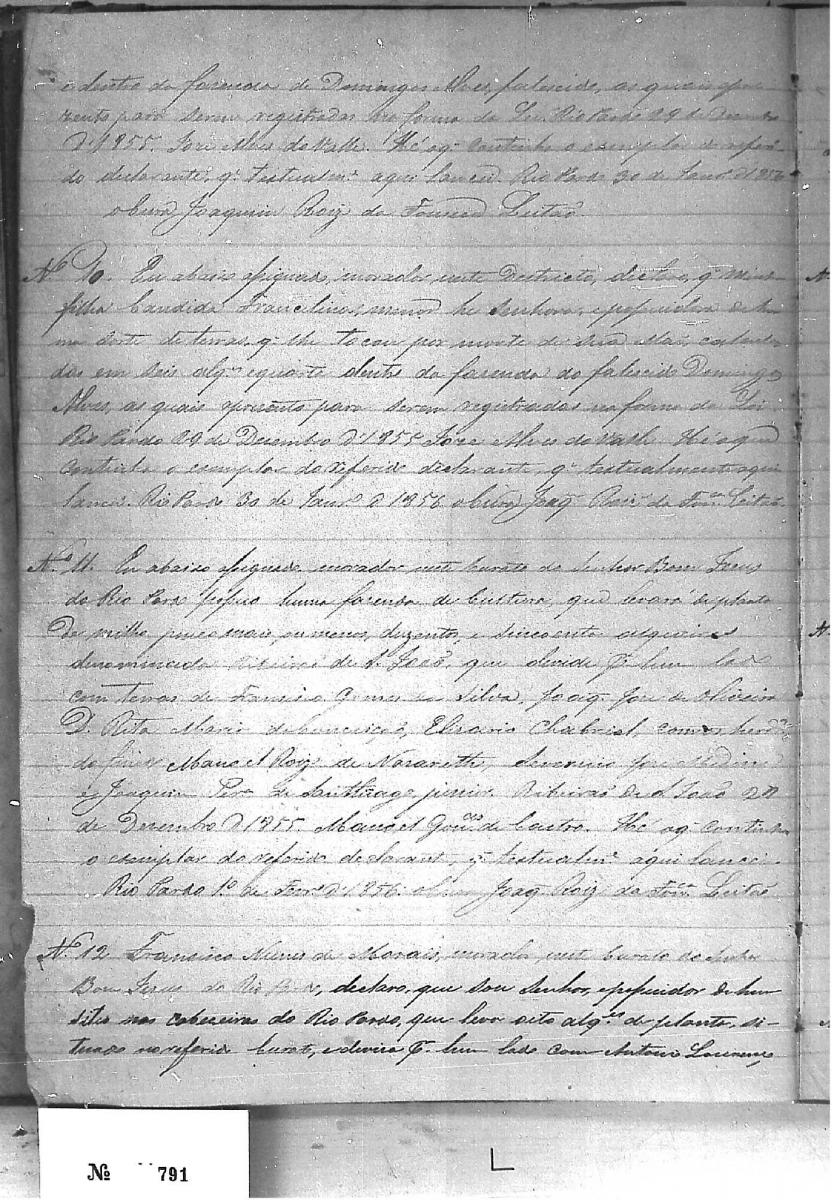 e dentro da fazenda de Domingos Alves, falescido, as quais apre
zento para serem registradas na forma da Lei. Rio Pardo 29 de
D'1855. Jose Alves do Valle. He o q. continha o exemplar do referi-
do declarante, q. textualmte. aqui lancei. Rio Pardo 30 de Janr.o d'1856
o Cura Joaquim Roiz da Fonseca Leitaõ
N.o 10. Eu abaixo asignado, morador neste Destricto, declaro, q. minha
filha Candida Francelina, menor he Senhora, e posuidora de hu
ma sorte de terras, q. lhe tocou por morte de sua Mai, calcula
das em seis alq.s e quarta dentro da fazenda do falescido Domingos
Alves, as quais apresento para serem registradas na forma da Lei
Rio Pardo 29 de Desembro D'1855 Jose Alves do Valle He o que
continha o exemplar do referido declarante, q. textualmente aqui
lancei. Rio Pardo 30 de Janr.o d'1856 o Cura Joaq. Roiz da Fonc.a Leitaõ
N.o 11. Eu abaixo asignado, morador neste Curato do Senhor Bom Jesus
do Rio Pardo posuo huma fazenda de Cultura, que levará de planta
de milho pouco mais, ou menos, duzentos, e sincoenta alqueires
denominada Ribeiraõ de S. Joaõ, que devide p. hum lado
com terras de Francisco Gomes da Silva, Joaq. Jose de Oliveira
D. Rita Maria da Conceiçaõ, Elisario Chabriel, com os herd.os
do finado Manoel Roiz de Nazareth, Severino Jose Medina
e Joaquim Per.a de Santhiago junior. Ribeiraõ de S. Joaõ 27
de Dezembro D'1855. Manoel Gon.ces de Castro. He o q. continha
o exemplar do referido declarant., q. textualm.e aqui lancei.
Rio Pardo 1.o de Fevr.o d'1856 o Cura Joaq. Roiz da Fonc.a Leitaõ
N. 12 Francisco Nunes de Morais, morador neste Curato do Senhor
Bom Jesus do Rio Pardo, declaro, que sou Senhor, e posuidor de hum
sitio nas cabeceiras do Rio Pardo, que leva oito alq.res de planta, si-
tuado no referido Curat., e devisa p. hum lado com Antonio Lourenço
N.o
N.o
Nº 791
L